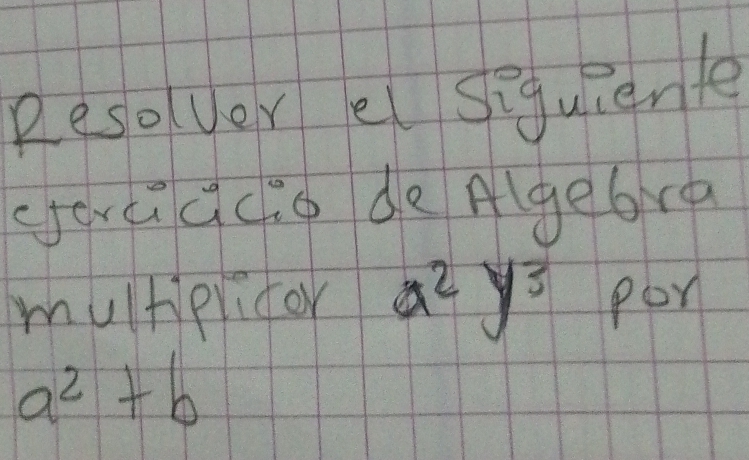 Resolver el Siguiente
ejerciciació de Algebra
multiplicar a² y³ por
a² + b